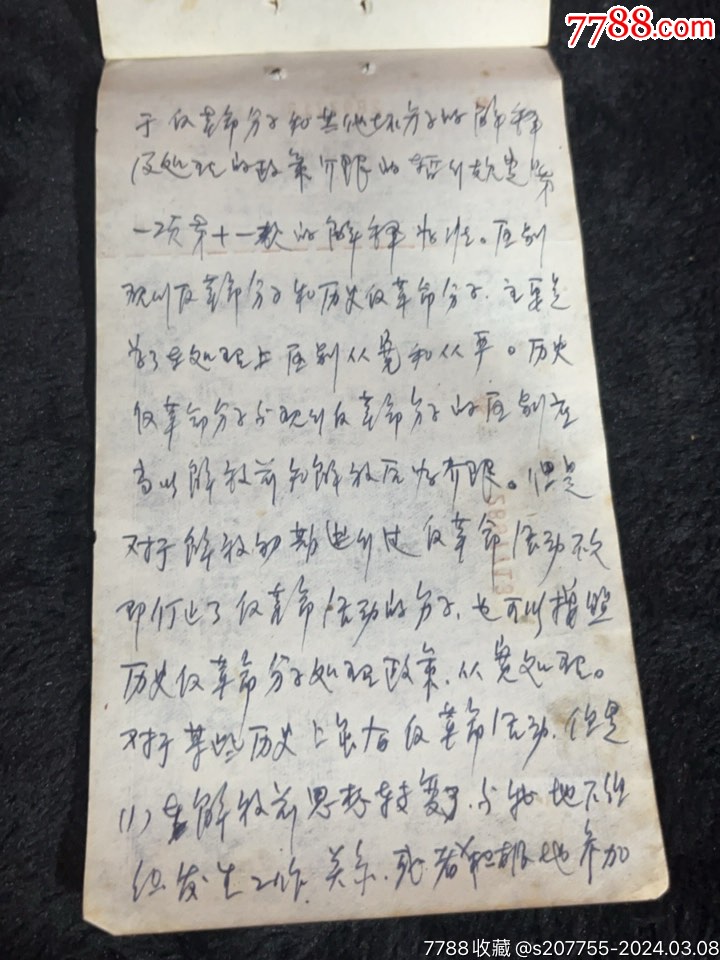 7788.com
于反革命分子和其他坏分子的解释
及处理的政策界限的暂行规定》第
一项第十一款的解释办法。区别
现行反革命分子和历史反革命分子，主要是
为了在处理上区别从宽和从严。历史
反革命分子与现行反革命分子的区别应
当以解放前和解放后为界限。但是
对于解放初期进行过反革命活动不久
即停止了反革命活动的分子，也可以按照
历史反革命分子处理政策，从宽处理。
对于某些历史上虽有反革命活动，但是
(1)在解放前思想转变了，与我地下组
织发生工作关系，或者积极地参加
7788收藏 @s207755-2024.03.08